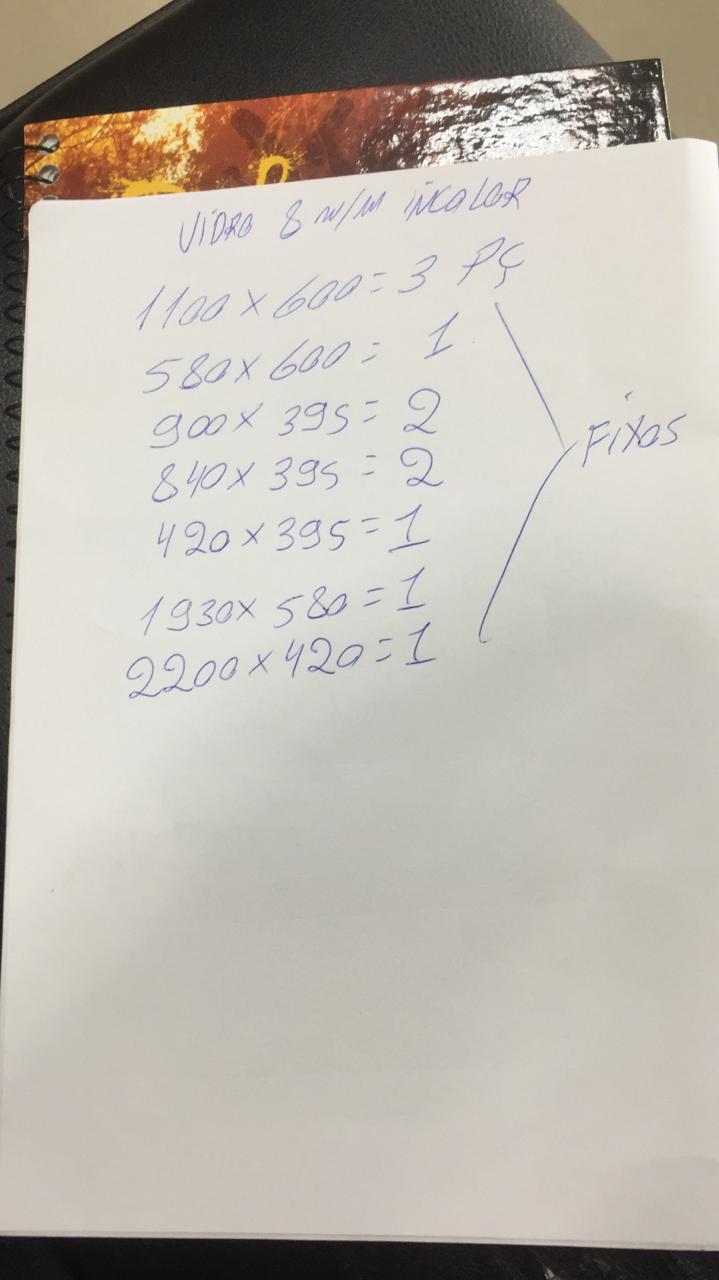 VIDRO 8 m/m incolor
1100 x 600 = 3 PÇ
580 x 600 = 1
900 x 395 = 2
840 x 395 = 2
Fixos
420 x 395 = 1
1930 x 580 = 1
2200 x 420 = 1